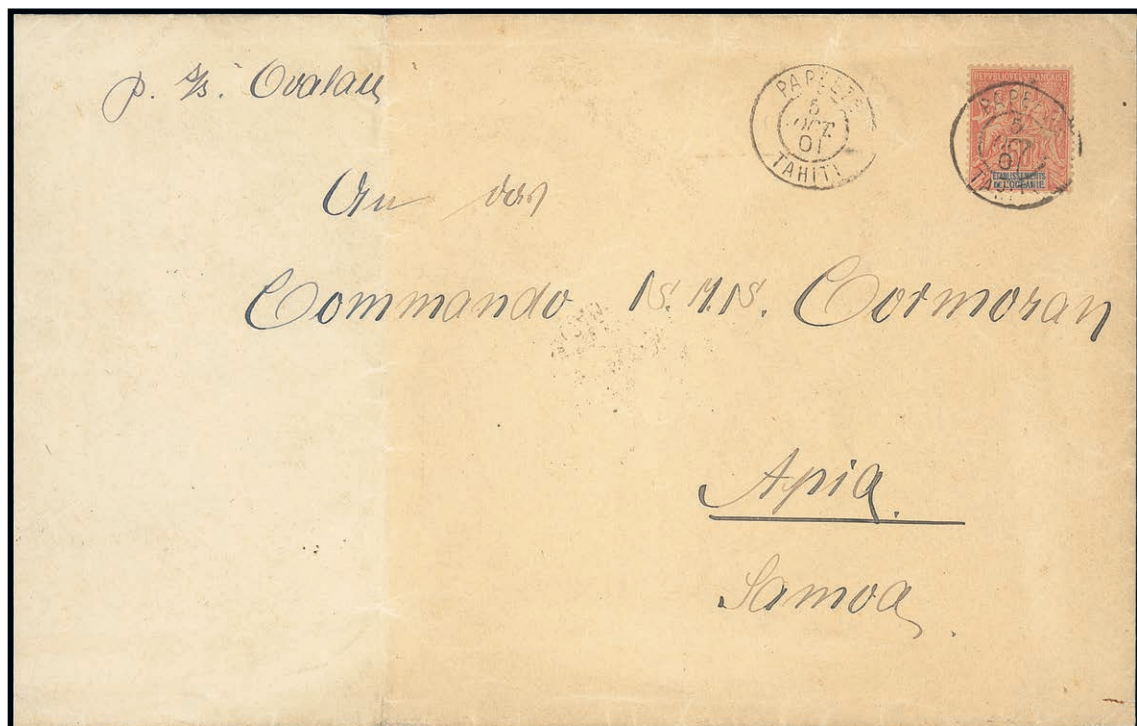 p. S/s. Ovalau
PAPEETE
5
OCT.
01
TAHITI
REPUBLIQUE FRANCAISE
PAPEETE
5
OCT
01
TAHITI
ETABLISSEMENTS
DE L'OCEANIE
An das
Commando S.M.S. Cormoran
Apia.
Samoa.